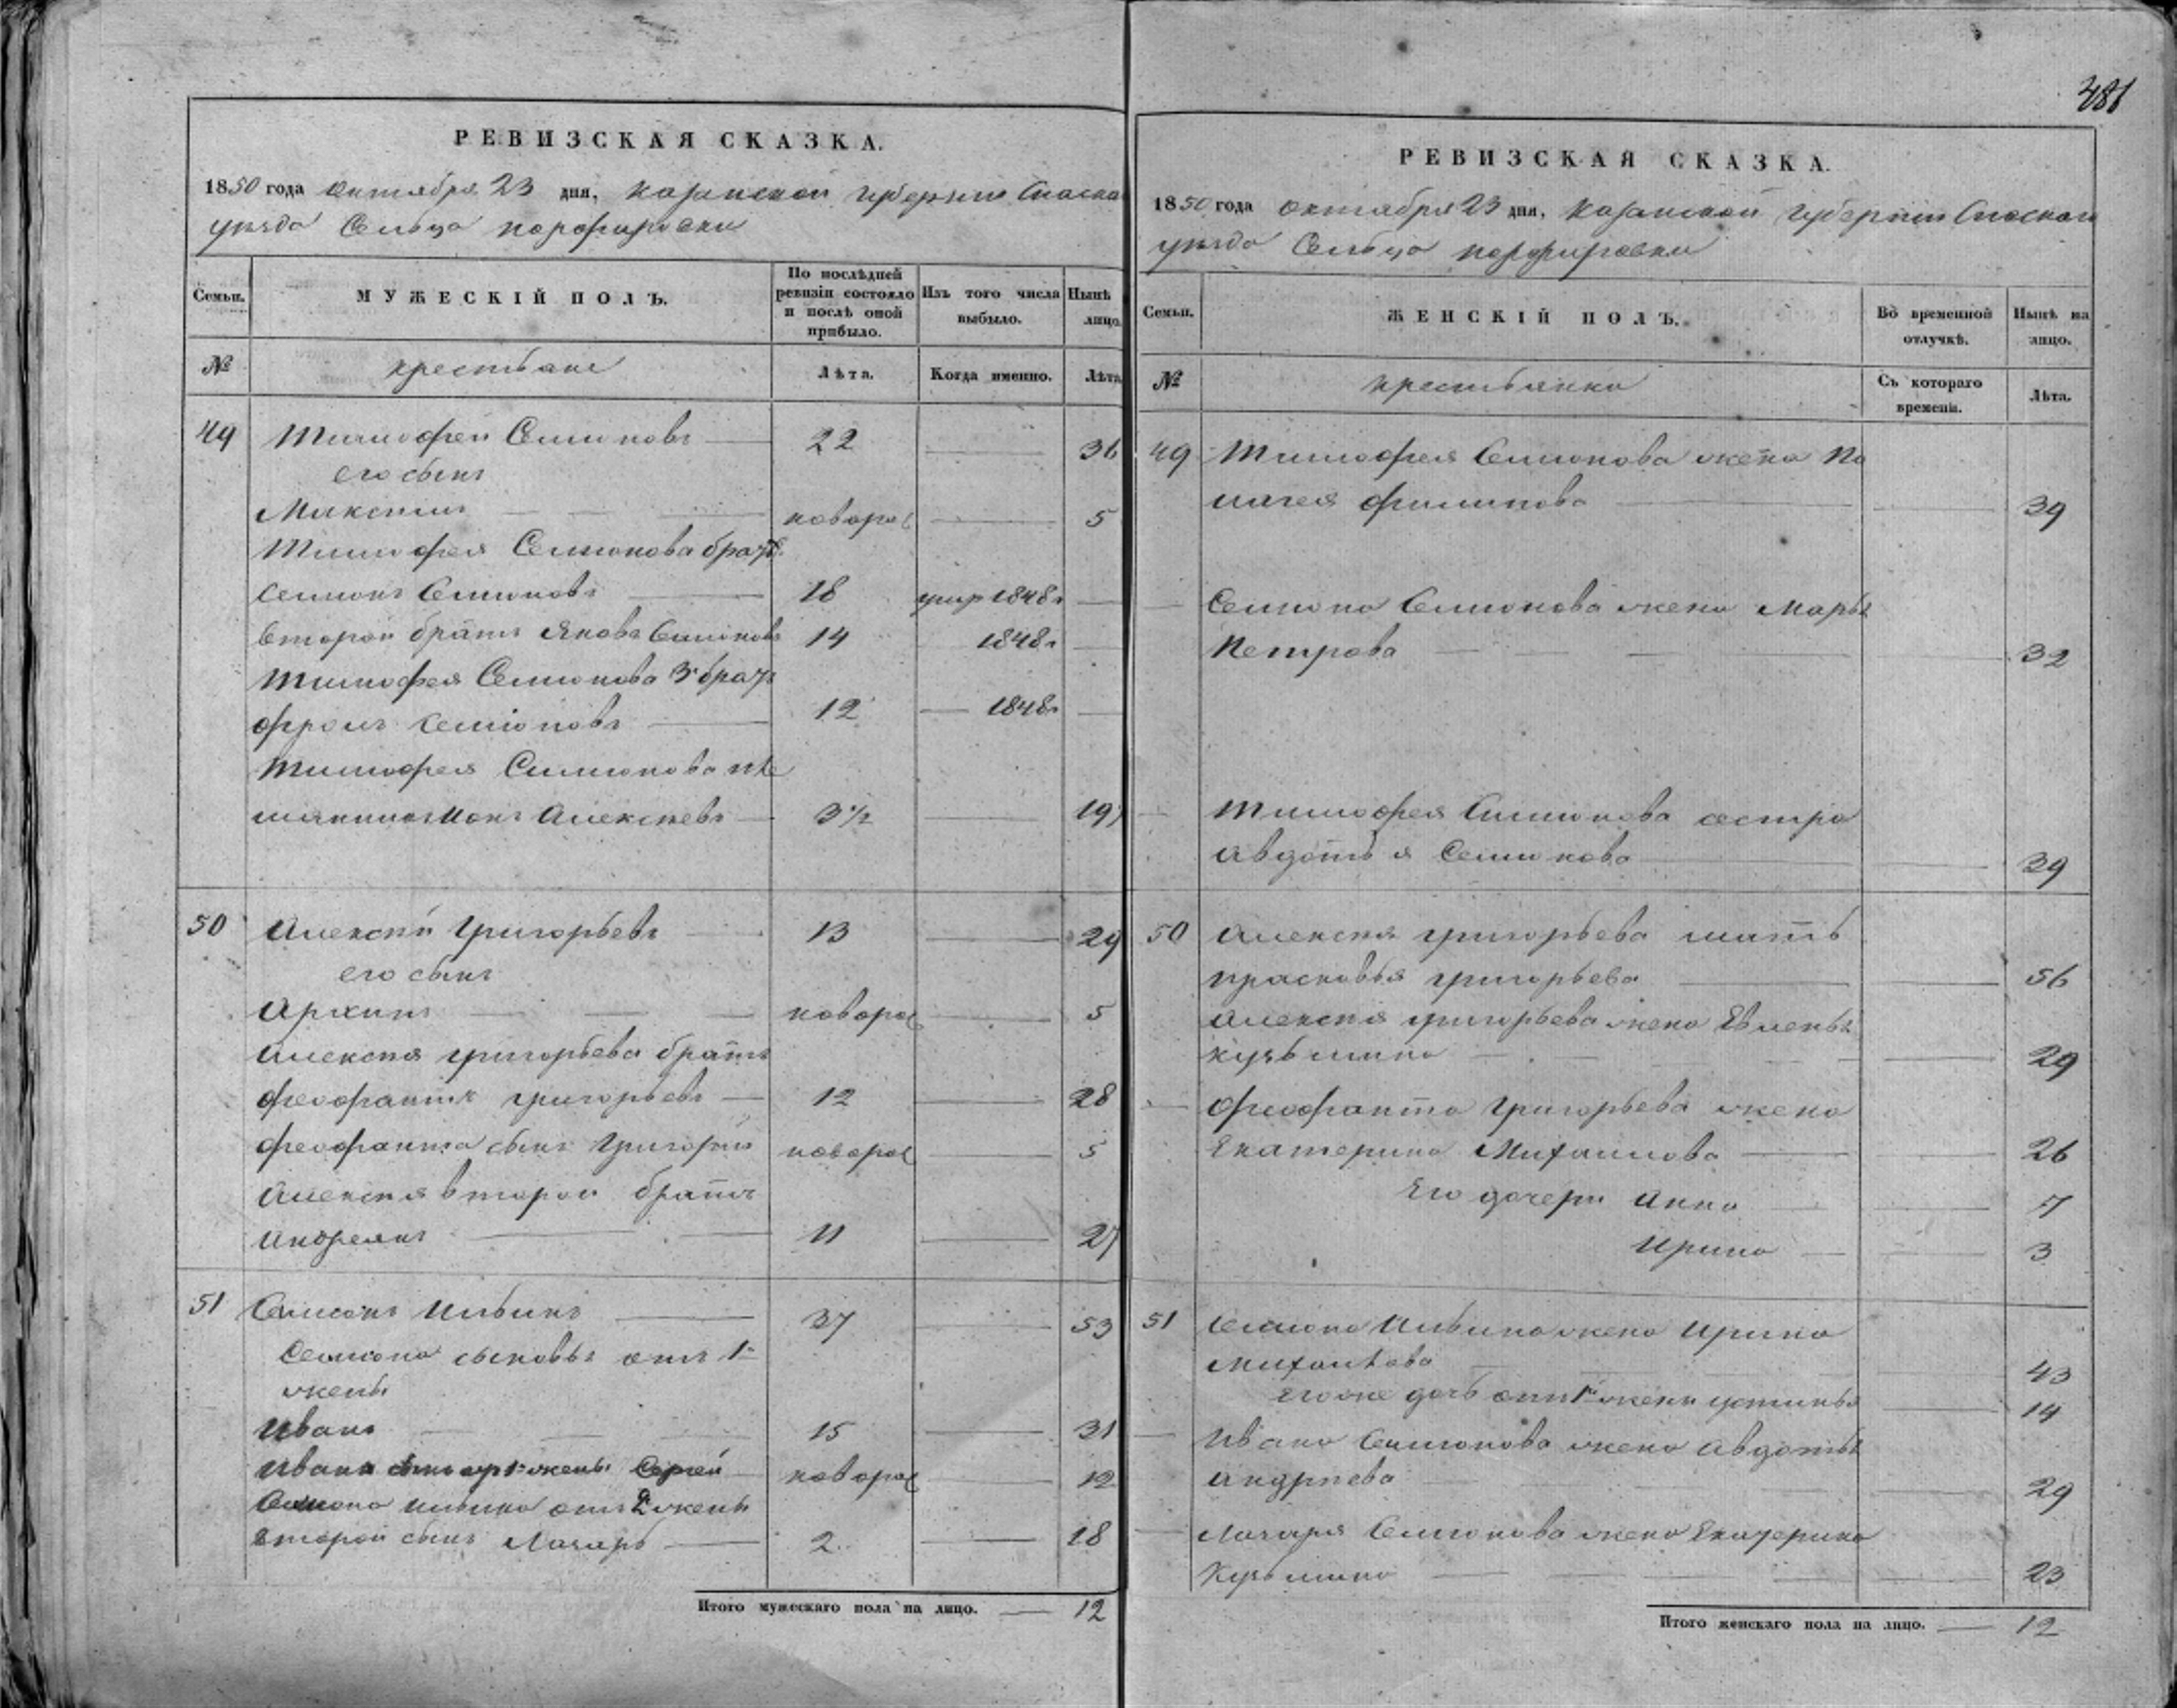 481
РЕВИЗСКАЯ СКАЗКА.
1850 года октября 23 дня, Казанской губернии Спаска
уезда Сельца порфировки
Семьи.
МУЖЕСКІЙ ПОЛЪ.
По послѣдней ревизіи состояло и послѣ оной прибыло.
Изъ того числа выбыло.
Нынѣ лицо
№
крестьане
Лѣта.
Когда именно.
Лѣта
49 Тимофей Семионовъ 22 36
его сынъ
Максимъ новорож 5
Тимофея Семионова братъ
Семионъ Семионовъ 18 умр 1848г
второй братъ Яковъ Семионовъ 14 1848г
Тимофея Семионова 3й братъ
Фролъ Семионовъ 12 1848г
Тимофея Семионова пле
Алексѣевъ 3½ 19
50 Алексѣй Григорьевъ 13 29
его сынъ
Архипъ новорож 5
Алексѣя григорьева братъ
Феофантъ григорьевъ 12 28
Феофанта сынъ Григорий новорож 5
Алексѣя второй братъ
Андреянъ 11 27
51 Семионъ Ильинъ 37 53
Семиона сыновья отъ 1й
жены
Иванъ 15 31
Ивана сынъ от 1й жены Сергей новорож 12
Семиона Ильина отъ 2й жены
второй сынъ Лазарь 2 18
Итого мужескаго пола на лицо. 12
РЕВИЗСКАЯ СКАЗКА.
1850 года октября 23 дня, Казанской губернии Спаскаго
уезда Сельца порфировки
Семьи.
ЖЕНСКІЙ ПОЛЪ.
Во временной отлучкѣ.
Нынѣ на лицо.
№
крестьянки
Съ котораго времени.
Лѣта.
49 Тимофея Семионова жена Пе
лагея филипова 39
Семиона Семионова жена Марья
Петрова 32
Тимофея Семионова сестра
Авдотья Семионова 39
50 Алексѣя григорьева мать
прасковья григорьева 56
Алексѣя григорьева жена
кузьмина 29
Феофанта Григорьева жена
Екатерина Михаилова 26
Его дочери Анна 7
Ирина 3
51 Семиона Ильина жена Ирина
Михаилова 43
Его же дочь отъ 1й жены устинья 14
Ивана Семионова жена Авдотья
Андрѣева 29
Лазаря Семионова жена Екатерина
Кузьмина 23
Итого женскаго пола на лицо. 12